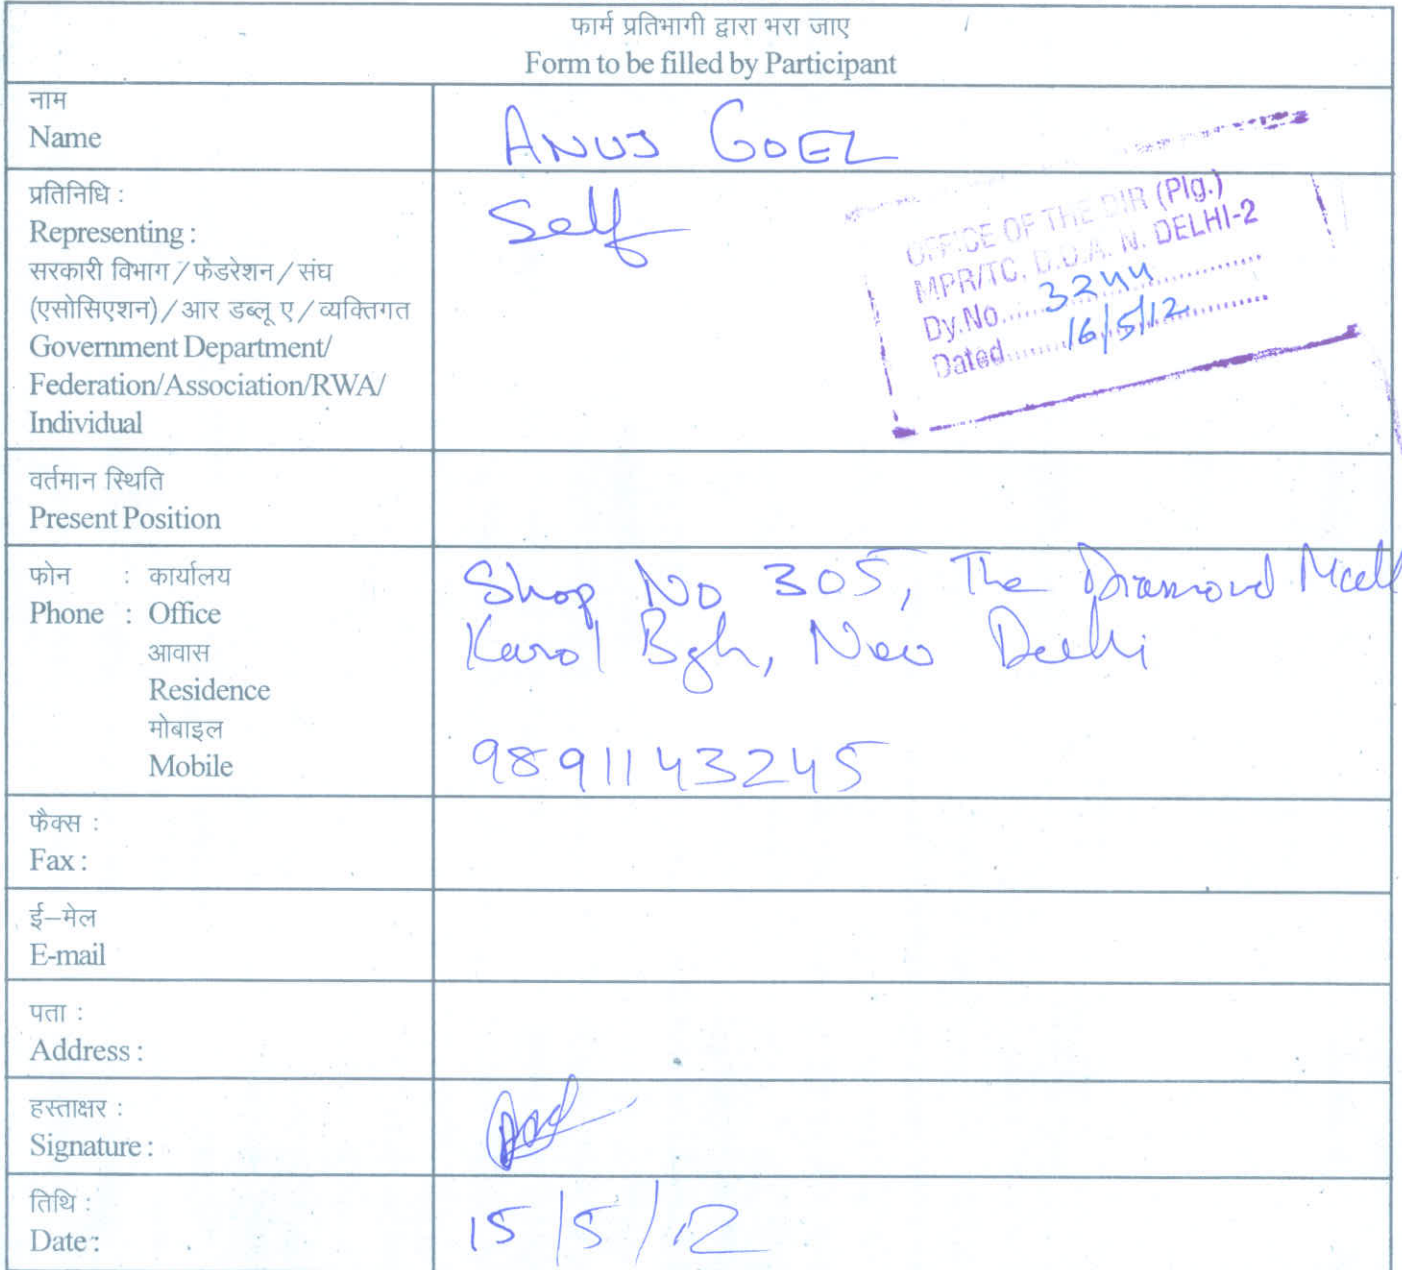 फार्म प्रतिभागी द्वारा भरा जाए
Form to be filled by Participant
नाम
Name
ANUJ GOEL
प्रतिनिधि :
Representing :
सरकारी विभाग/फेडरेशन/संघ
(एसोसिएशन)/आर डब्लू ए/व्यक्तिगत
Government Department/
Federation/Association/RWA/
Individual
Self
OFFICE OF THE DIR (Plg.)
MPR/TC, D.D.A. N. DELHI-2
Dy.No.....3244..............
Dated......16/5/12..............
वर्तमान स्थिति
Present Position
फोन : कार्यालय
Phone : Office
आवास
Residence
मोबाइल
Mobile
Shop No 305, The Diamond Mall
Karol Bgh, New Delhi
9891143245
फैक्स :
Fax :
ई–मेल
E-mail
पता :
Address :
हस्ताक्षर :
Signature :
तिथि :
Date :
15/5/12